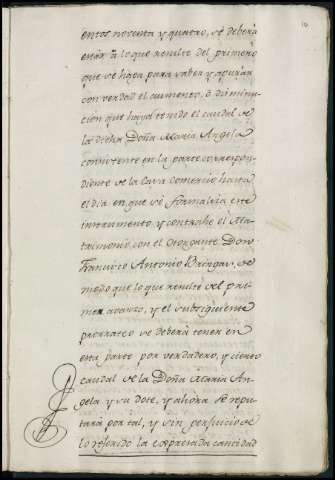 10
entos noventa y quatro, se deberá
estar á lo que resulte del primero
que se haga para saber y apurar
con verdad el aumento, ô diminu-
cion que haya tenido el caudal de
la dicha Doña María Angela
combertente en la parte correspon-
diente de la Casa Comercio hasta
el dia en que se formaliza este
instrumento y contrahe el Ma-
trimonio con el otorgante Don
Francisco Antonio Bringas, de
modo que lo que resulte del pri-
mer avanzo, y el subsiguiente
prorrateo se deberá tener en
esta parte por verdadero, y cierto
caudal de la Doña María An-
gela y su dote, y ahora se repu-
tará por tal, y sin perjuicio de
lo referido la expresada cantidad